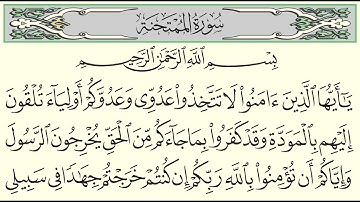 سورة الممتحنة
بِسْمِ ٱللَّهِ ٱلرَّحْمَٰنِ ٱلرَّحِيمِ
يَٰٓأَيُّهَا ٱلَّذِينَ ءَامَنُوا۟ لَا تَتَّخِذُوا۟ عَدُوِّى وَعَدُوَّكُمْ أَوْلِيَآءَ تُلْقُونَ
إِلَيْهِم بِٱلْمَوَدَّةِ وَقَدْ كَفَرُوا۟ بِمَا جَآءَكُم مِّنَ ٱلْحَقِّ يُخْرِجُونَ ٱلرَّسُولَ
وَإِيَّاكُمْ أَن تُؤْمِنُوا۟ بِٱللَّهِ رَبِّكُمْ إِن كُنتُمْ خَرَجْتُمْ جِهَٰدًا فِى سَبِيلِى